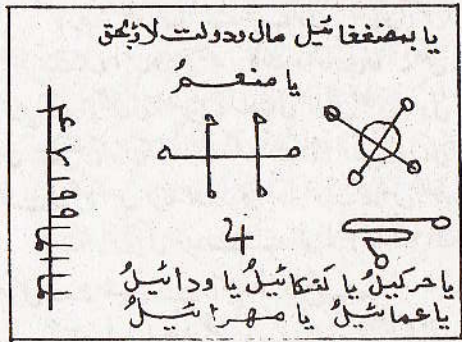 یا بمضغفائیل مال ودولت لاؤ بحق
یا منعمُ
یا حرکیلُ یا کفکائیلُ یا ودائیلُ
یا عمائیلُ یا مھرائیلُ